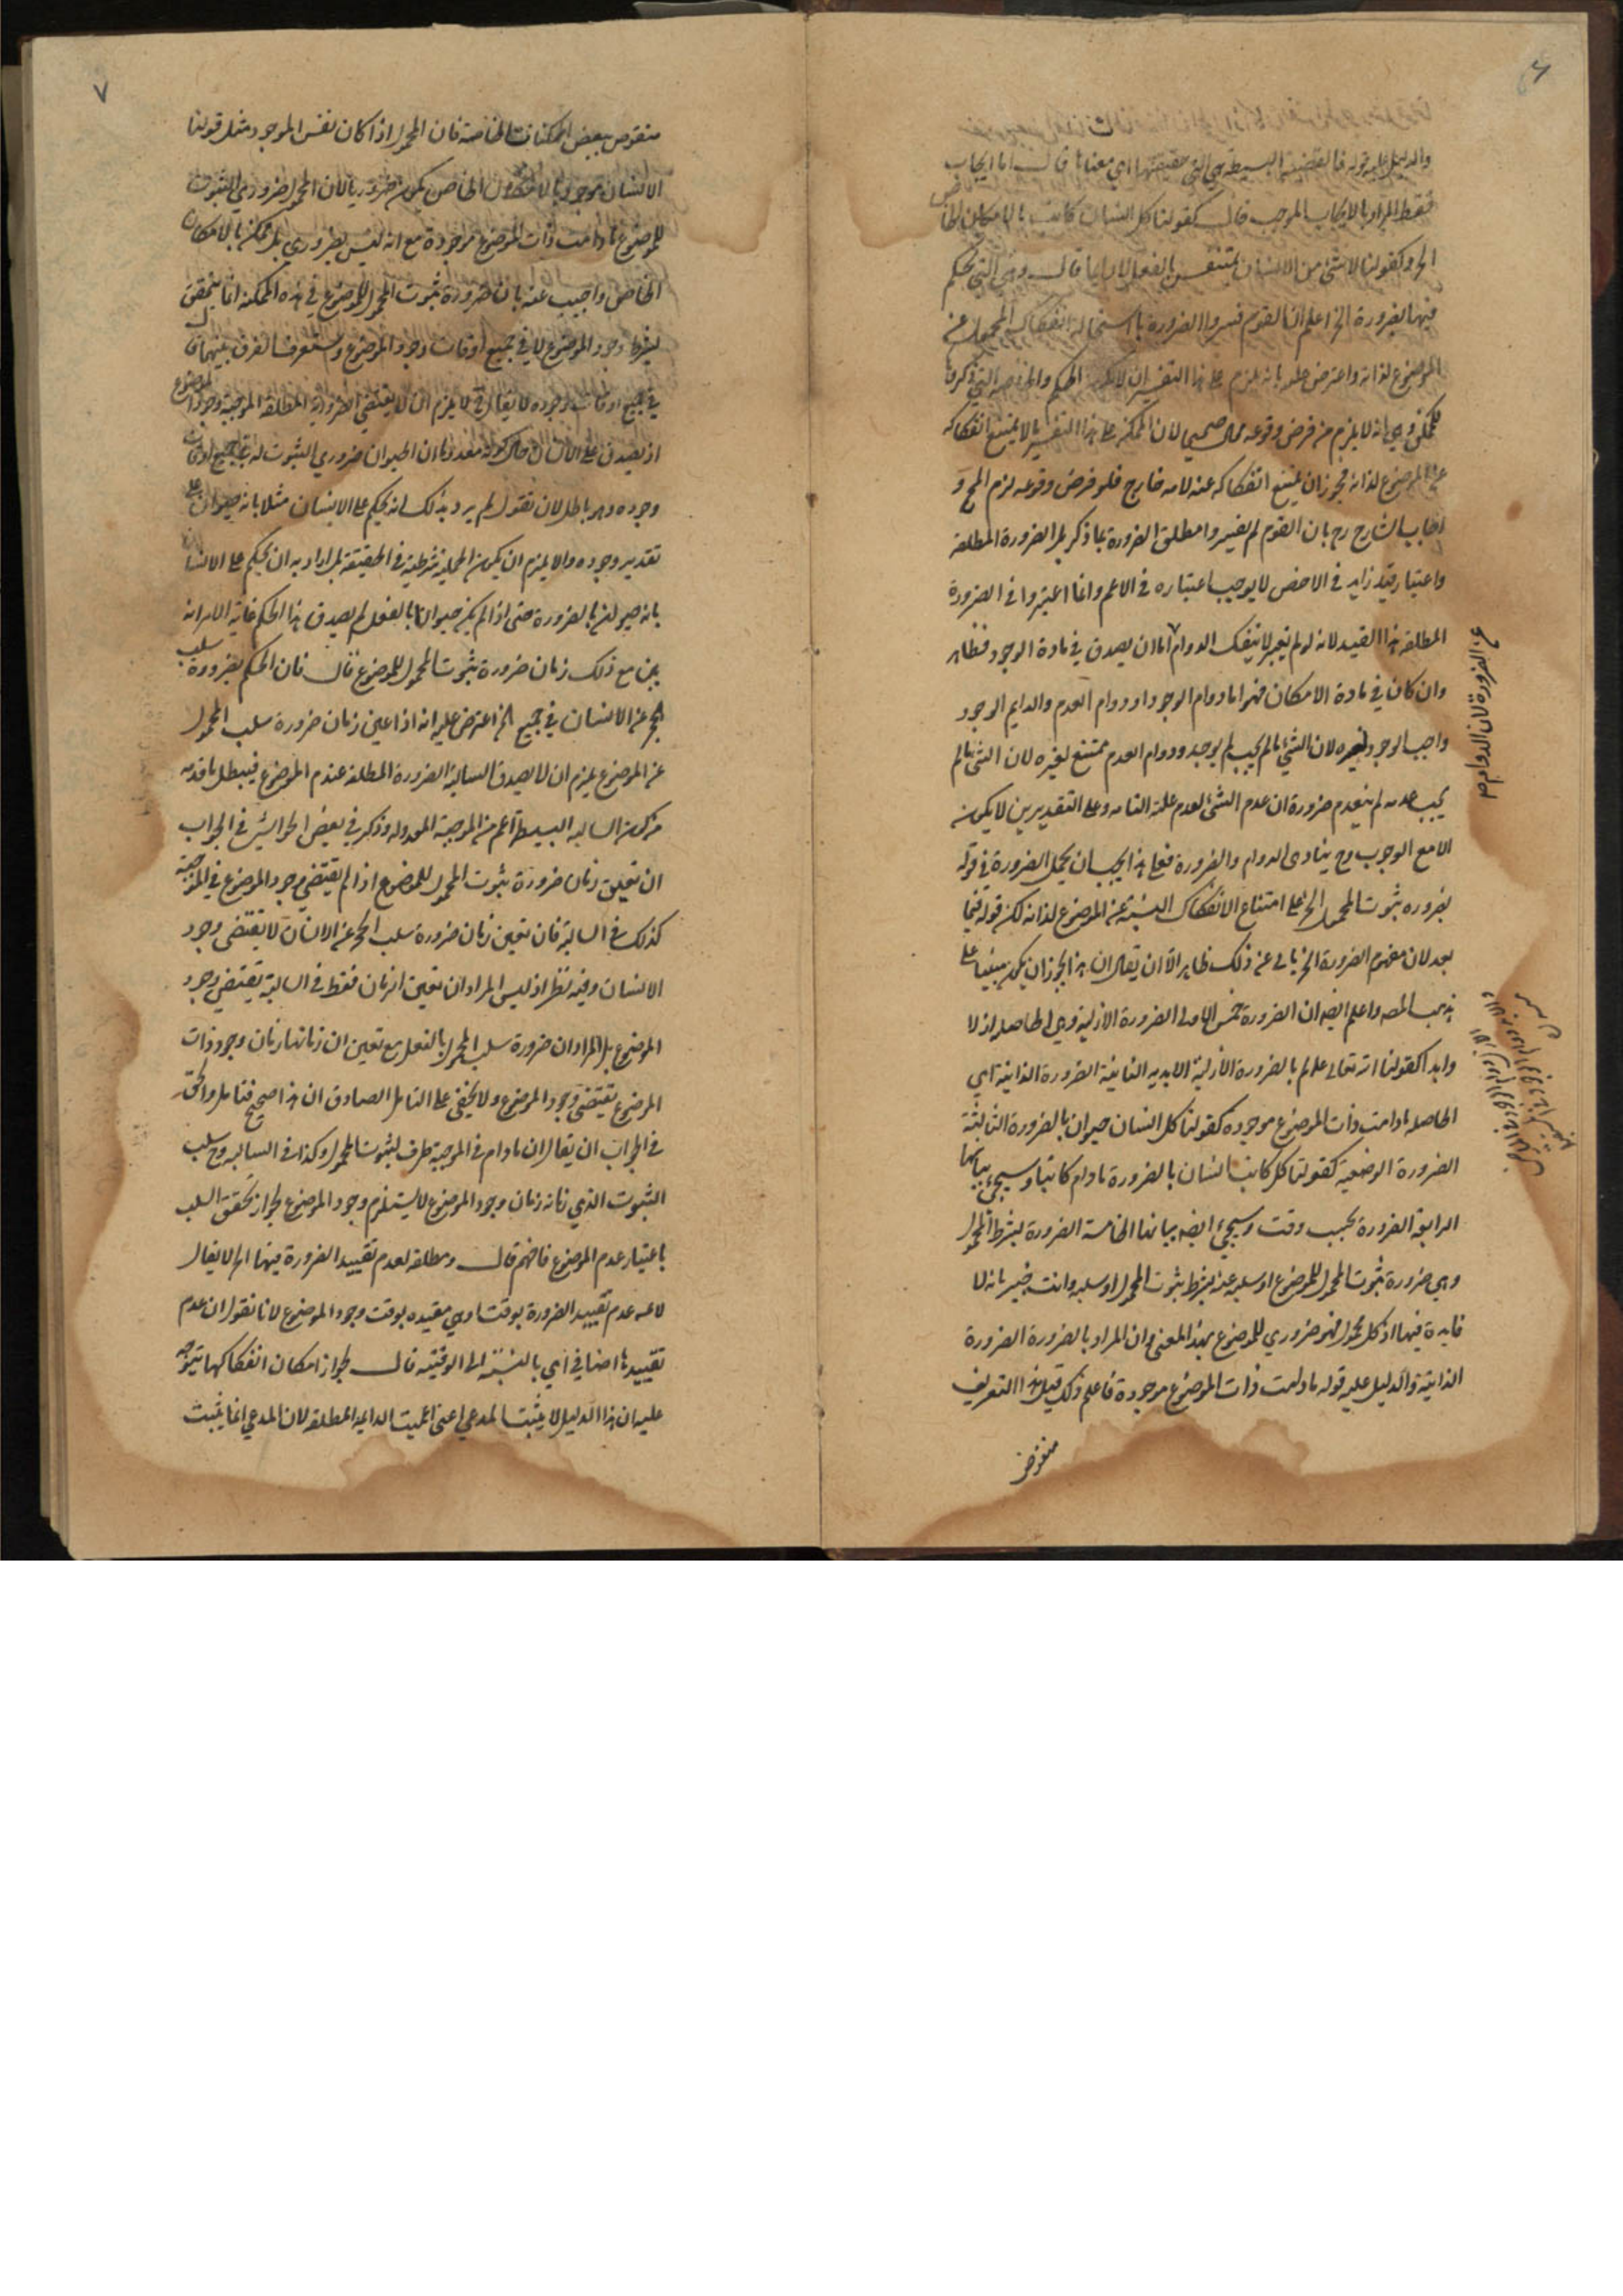 ٦
والدليل عليه قوله فالقضية البسيطة هي التي حقيقتها اي معناها قال اما ايجاب
فقط المراد بالايجاب الموجب قال كقولنا كل انسان كاتب بالامكان الخاص
الخ وكقولنا لا شئ من الانسان بمتنفس بالفعل لا دايما قال وهي التي يحكم
فيها بضرورة الخ اعلم ان القوم فسروا الضرورة باستحالة انفكاك المحمول عن
الموضوع لذاته واعترض عليه بانه يلزم على هذا التفسير ان لا الحكم
للممكن وهي انه لا يلزم من فرض وقوعه محال صحيحا لان الممكن على هذا التفسير ما لا يمتنع انفكاكه
عن الموضوع لذاته فيجوز ان يمتنع انفكاكه عنه لامر خارج فلو فرض وقوعه لزم المح و
اجاب الشارح رح بان القوم لم يفسروا مطلق الضرورة بما ذكر بل الضرورة المطلقة
واعتبار قيد زايد في الاخص لا يوجب اعتباره في الاعم وانما اعتبروا في الضرورة
المطلقة هذا القيد لانه لو لم يعتبر لا ينفك الدوام اما ان يصدق في مادة الوجود فظاهر
وان كان في مادة الامكان فهو اما دوام الوجود او دوام العدم والدايم الوجود
واجب الوجود لغيره لان الشئ ما لم يجب لم يوجد ودوام العدم ممتنع لغيره لان الشئ ما لم
يجب عدمه لم ينعدم ضرورة ان عدم الشئ لعدم علته التامه وعلى التقديرين لا يكون
الا مع الوجوب وح ينادى الدوام والضرورة فعلى هذا يجب ان يحمل الضرورة في قوله
بضروره ثبوت المحمول الخ على امتناع الانفكاك النسبة عن الموضوع لذاته لكن قوله فيما
بعد لان مفهوم الضرورة الخ يابى عن ذلك ظاهر الا ان يقال ان هذا يجوز ان يكون مبنيا على
مذهب المصه واعلم ايضه ان الضرورة خمس الاولى الضرورة الازلية وهي الحاصلة ازلا
وابدا كقولنا الله تعالى عالم بالضرورة الازلية الابديه الثانية الضرورة الذاتية اي
الحاصله مادامت ذات الموضوع موجوده كقولنا كل انسان حيوان بالضرورة الثالثة
الضرورة الوصفية كقولنا كل كاتب انسان بالضرورة مادام كاتبا وسيجئ بيانها
الرابعة الضرورة بحسب وقت وسيجئ ايضه بيانها الخامسة الضرورة بشرط المحمول
وهي ضرورة ثبوت المحمول للموضوع او سلبه عنه بشرط ثبوت المحمول او سلبه وانت خبير بانه لا
فايدة فيها اذ كل محمول فهو ضروري للموضوع بهذا المعنى وان المراد بالضرورة الضرورة
الذاتية والدليل عليه قوله مادامت ذات الموضوع موجودة فاعلم ذلك قيل هذا التعريف
منقوض
٧
منقوض ببعض الممكنات الخاصة فان المحمول اذا كان نفس الموجود مثل قولنا
الانسان موجود بالامكان الخاص يكون ضروريا لان المحمول ضروري الثبوت
للموضوع مادامت ذات الموضوع موجودة مع انه ليس بضروري بل ممكن بالامكان
الخاص واجيب عنه بان ضرورة ثبوت المحمول للموضوع في هذه الممكنة انما يتحقق
بشرط وجود الموضوع لا في جميع اوقات وجود الموضوع وستعرف الفرق بينهما
في جميع اوقات وجوده لا يقال فح يلزم ان لا يقتضي الضرورية المطلقة الموجبة وجود الموضوع
اذ يصدق على الانسان حال كونه معدوما ان الحيوان ضروري الثبوت له في جميع اوقات
وجوده وهو باطل لان نقول لم يرد بذلك انه يحكم على الانسان مثلا بانه حيوان على
تقدير وجوده والا يلزم ان يكون الحملية شرطية في الحقيقة بل اراد به ان يحكم على الانسان
بانه حيوان بالضرورة حتى اذا لم يكن حيوانا بالفعل لم يصدق هذا الحكم غاية الامر انه
يعين مع ذلك زمان ضرورة ثبوت المحمول للموضوع قال فان الحكم بضرورة سلب
الحجر عن الانسان في جميع الخ اعترض عليه انه اذا عين زمان ضرورة سلب المحمول
عن الموضوع يلزم ان لا يصدق السالبة الضرورة المطلقة عند عدم الموضوع فيبطل ما قدمه
من كون السالبه البسيطة اعم من الموجبة المعدوله وذكر في بعض الحواشي في الجواب
ان تعليق زمان ضرورة ثبوت المحمول للموضوع اذا لم يقتضي وجود الموضوع في الموجبة
كذلك في السالبة فان تعين زمان ضرورة سلب الحجر عن الانسان لا يقتضى وجود
الانسان وفيه نظر اذ ليس المراد ان تعين الزمان فقط في السالبة يقتضي وجود
الموضوع بل المراد ان ضرورة سلب المحمول بالفعل مع تعين ان زمانها زمان وجود ذات
الموضوع يقتضي وجود الموضوع ولا يخفى على التامل الصادق ان هذا صحيح فتامل والحق
في الجواب ان يقال ان مادام في الموجبة ظرف لثبوت المحمول وكذا في السالبه وح سلب
الثبوت الذي زمانه زمان وجود الموضوع لا يستلزم وجود الموضوع لجواز تحقق السلب
باعتبار عدم الموضوع فافهم قال ومطلقه لعدم تقييد الضرورة فيها الخ لا يقال
لا نم عدم تقييد الضرورة بوقت وهي مقيده بوقت وجود الموضوع لانا نقول ان عدم
تقييدها اضافي اي بالنسبة الى الوقتيه قال لجواز امكان انفكاكها يتوجه
عليه ان هذا الدليل لا يثبت المدعى اعني اعميت الدايمه المطلقه لان المدعى انما يثبت